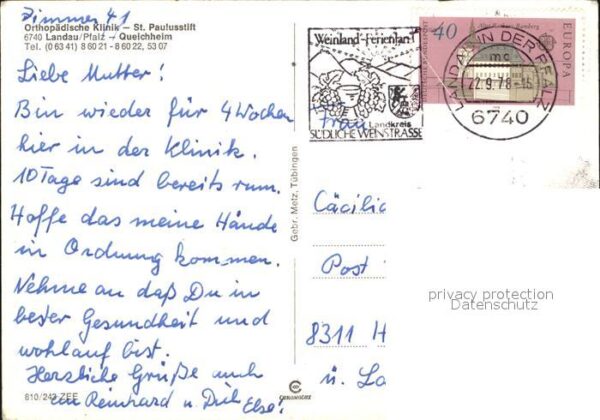 Zimmer 41
Orthopädische Klinik — St. Paulusstift
6740 Landau/Pfalz - Queichheim
Tel. (0 63 41) 8 60 21 - 8 60 22, 53 07
Liebe Mutter!
Bin wieder für 4 Wochen
hier in der Klinik.
10 Tage sind bereits rum.
Hoffe das meine Hände
in Ordnung kommen.
Nehme an daß Du in
bester Gesundheit und
wohlauf bist.
Herzliche Grüße auch
an Reinhard u. Dich Else!
810/243 ZEE
Gebr. Metz, Tübingen
Weinland-Ferienland
Landkreis
SÜDLICHE WEINSTRASSE
40
EUROPA
LANDAU IN DER PFALZ
mc
22.9.78-16
6740
Frau
Cäcilia
Post
8311 H
u. La
privacy protection
Datenschutz